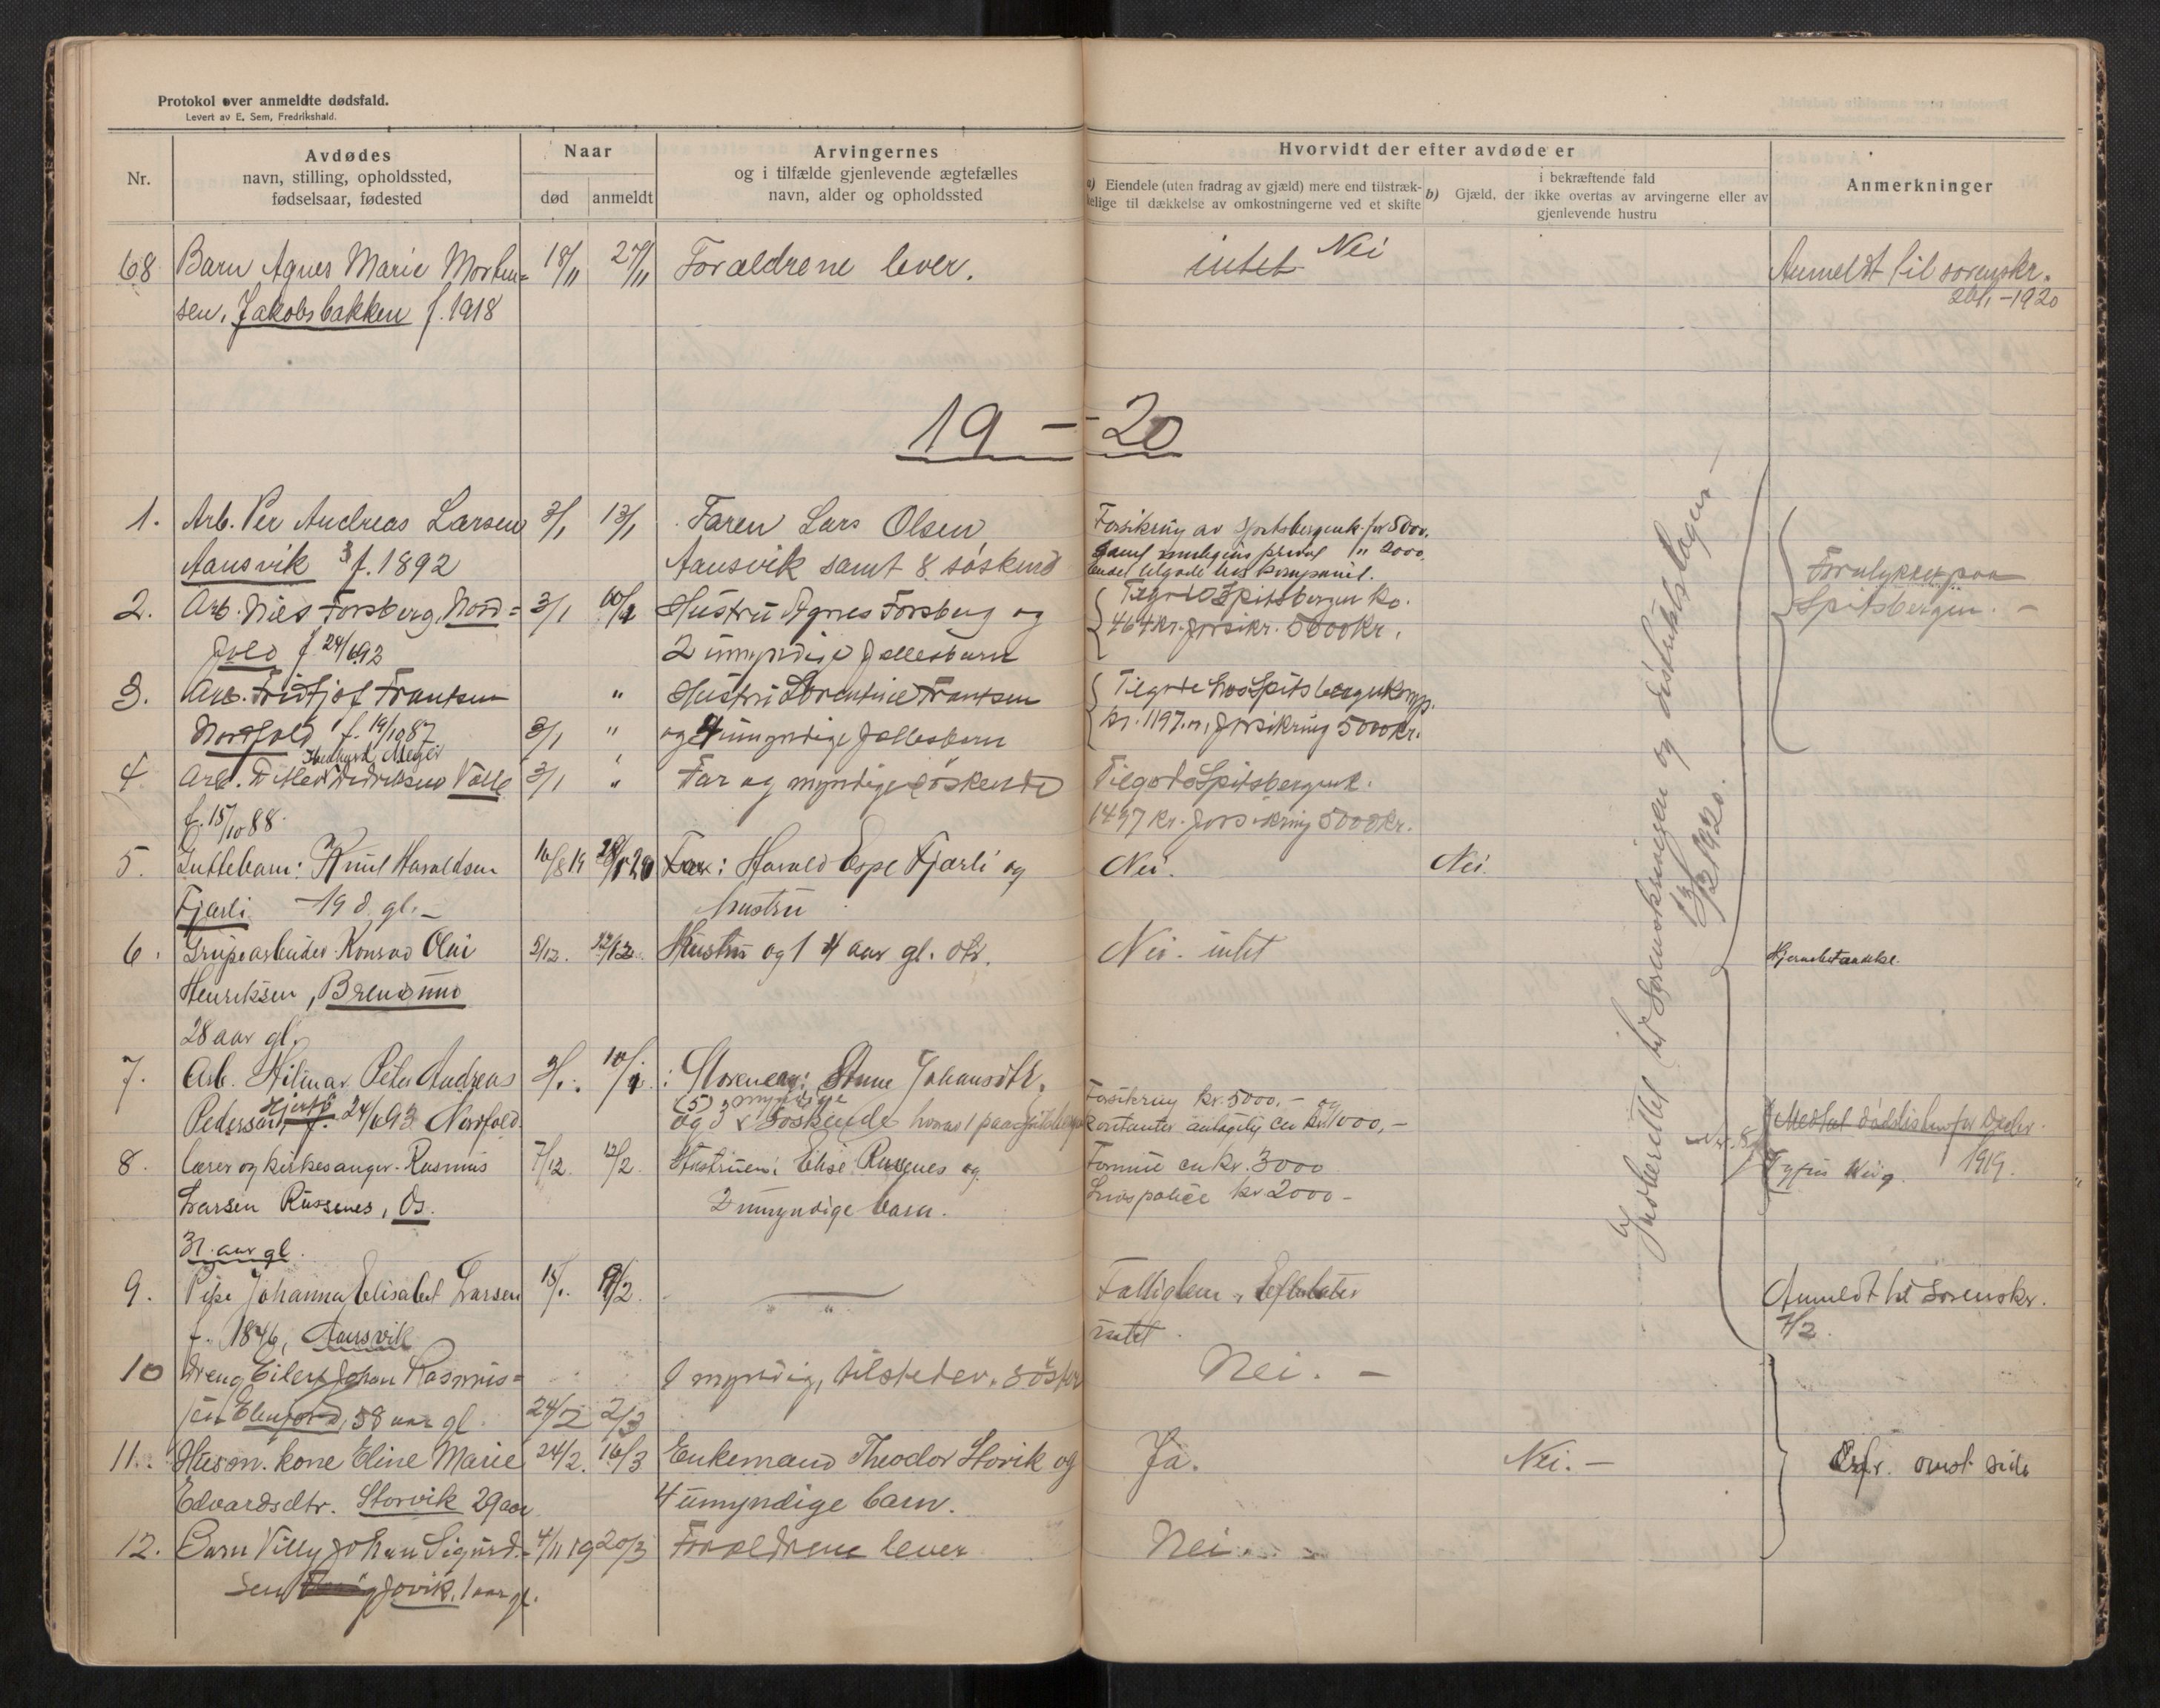 Protokol over anmeldte dødsfald.
Levert av E. Sem, Fredrikshald.
Nr.
Avdødes
navn, stilling, opholdssted,
fødselsaar, fødested
Naar
død
anmeldt
Arvingernes
og i tilfælde gjenlevende ægtefælles
navn, alder og opholdssted
Hvorvidt der efter avdøde er
a) Eiendele (uten fradrag av gjæld) mere end tilstræk-
kelige til dækkelse av omkostningerne ved et skifte
i bekræftende fald
b) Gjæld, der ikke overtas av arvingerne eller av
gjenlevende hustru
Anmerkninger
68 Barn Agnes Marie Morten= 18/11 27/11 Forældrene lever. intet Nei Anmeldt til sorenskr.
sen, Jakobsbakken f. 1918
-1920
19 - - 20
1. Arb. Per Andreas Larsen 3/1 13/1 Faren Lars Olsen,
Aansvik f. 1892 Aansvik samt 8 søskend
2. Arb. Nils Forsberg, Nord= 3/1 Hustru Agnes Forsberg og
fold f. 24/6 93 2 umyndige fællesbarn
464 kr. forsikr. 5000 kr.
Forulykket paa
Spitsbergen. -
3. Arb. Fridtjof Frantsen " Hustru Lorentine Frantsen Tilgode hos Spitsbergenkomp.
Nordfold f. 19/10 87 3/1 " og 4 umyndige fællesbarn kr. 1197. forsikring 5000 kr.
4. Arb. Valle 3/1 " Far og myndige søskende Tilgode Spitsbergenk.
f. 15/10 88. 1497 kr. forsikring 5000 kr.
5. Guttebarn: Knut Haraldsen 16/8 19 Far: Harald Espe Fjærli og Nei. Nei.
Fjærli - 19 d. gl. - hustru
6. Grupearbeider Konrad Olai 5/12. Hustru og 1 4 aar gl. dtr. Nei. intet
Henriksen, Bremsund
28 aar gl.
7. Arb. Hilmar Peter Andreas 3/1. Johansdtr.
Pedersen, f. 24/6 93 Nordfold myndige
og søskende hvorav 1 paa Spitsbergen
Forsikring kr. 5000,- og
kontanter antagelig ca kr. 1000,-
8. Lærer og kirkesanger Rasmus 7/12. 12/2 Hustruen: Elise Russenes og Formue ca kr. 3000
Larsen Russenes, Os. 2 umyndige barn. Livspolice kr 2000 -
31 aar gl.
1919.
9. Pike Johanna Elisabet Larsen 18/1. 9/2 Fattiglem. Efterlater
f. 1846, Aansvik intet.
Anmeldt til Sorenskr.
Indberettet til Sorenskriveren og distriktslægen -
13/2 1920.
10 Dreng Eilert Johan Rasmus= 1 myndig, tilstedev. søster Nei. -
sen Elvfjord, 58 aar gl. 24/2 2/3
11. Husm. kone Eline Marie 24/2. 16/3 Enkemand Theodor Storvik og Ja. Nei. -
Edvardsdtr. Storvik 29 aar 4 umyndige barn.
12. Barn Villy Johan Sigurd- 4/11 19 20/3 Forældrene lever Nei.
sen 1 aar gl.